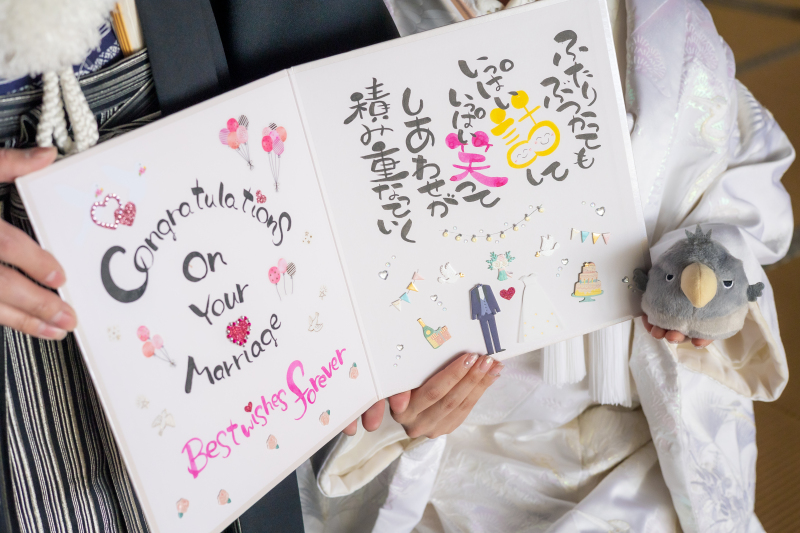 Congratulations
On
Your
Marriage
Best wishes forever
ふたり
ぶつかっても
いっぱい話して
いっぱい笑って
しあわせが
積み重なていく